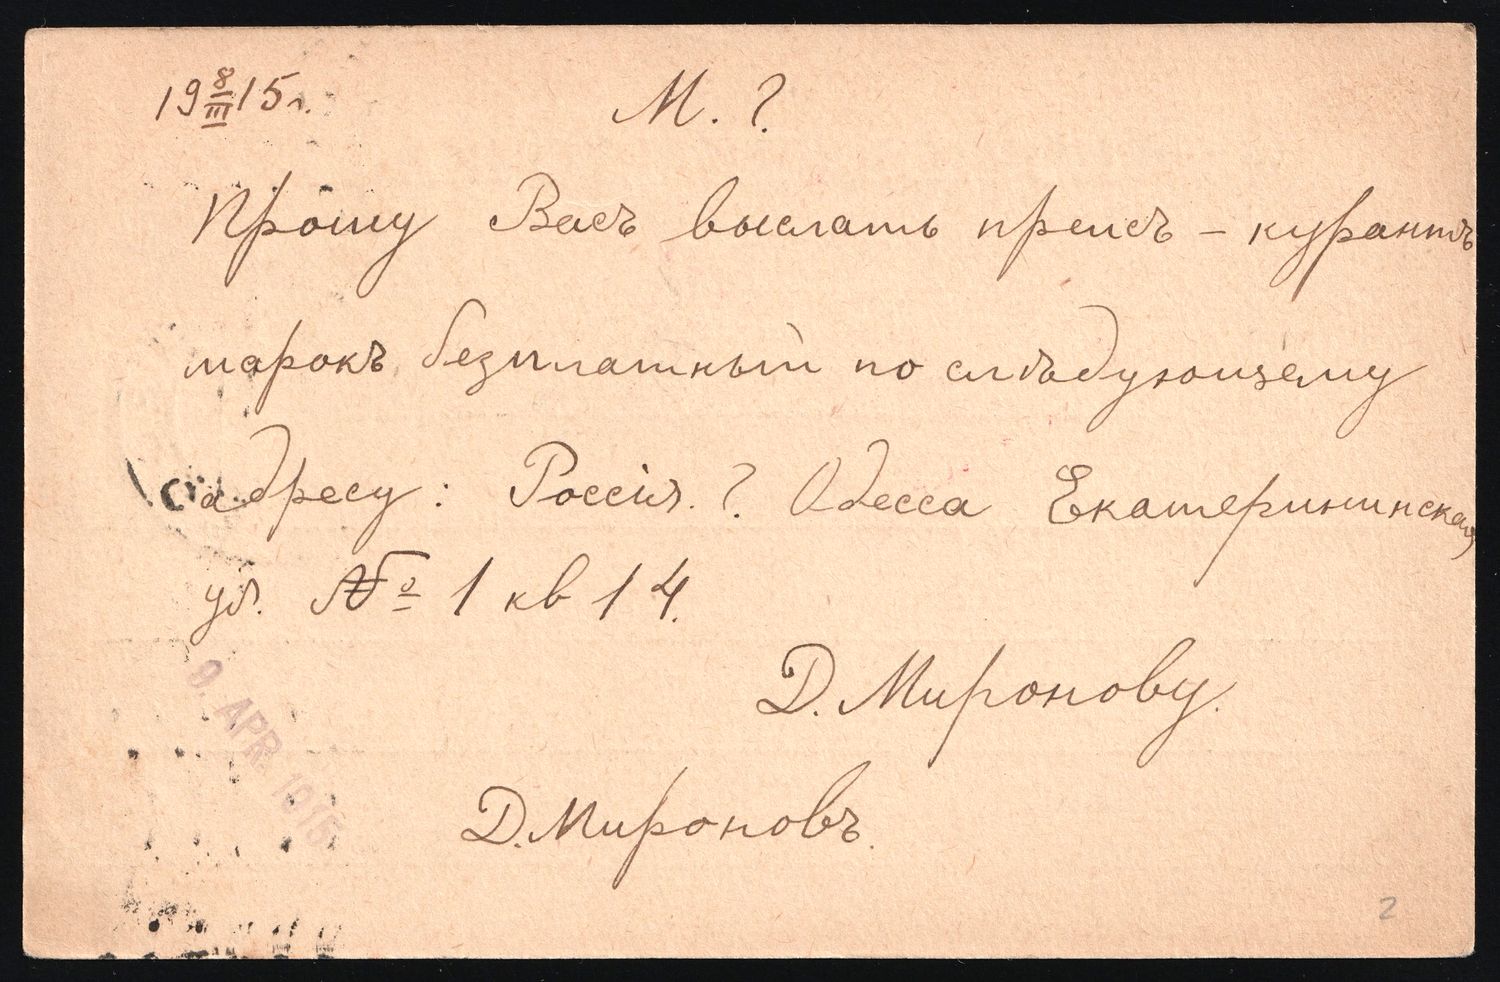 19 8/III 15 г.
М. Г.
Прошу Васъ выслать преисъ – курантъ
марокъ безплатный по слѣдующему
адресу: Россія. Г. Одесса Екатерининская
ул. № 1 кв 14.
Д. Миронову.
Д. Мироновъ.
9. APR. 1915
2